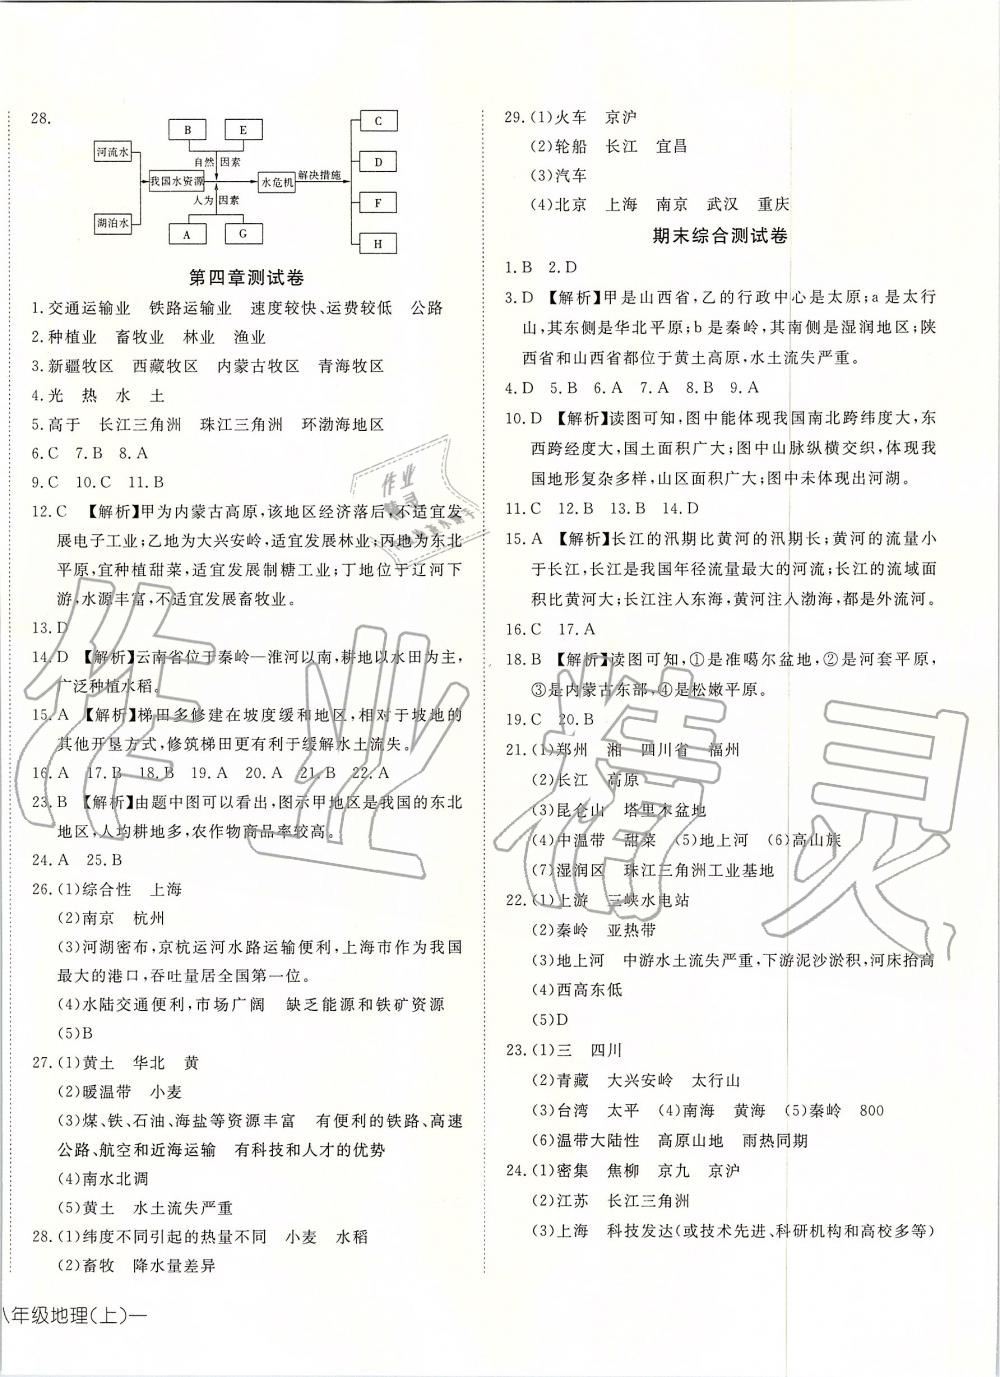 28.
B
E
C
D
F
H
河流水
自然 因素
我国水资源
水危机
解决措施
湖泊水
人为 因素
A
G
第四章测试卷
1.交通运输业 铁路运输业 速度较快、运费较低 公路
2.种植业 畜牧业 林业 渔业
3.新疆牧区 西藏牧区 内蒙古牧区 青海牧区
4.光 热 水 土
5.高于 长江三角洲 珠江三角洲 环渤海地区
6.C 7.B 8.A
9.C 10.C 11.B
12.C 【解析】甲为内蒙古高原,该地区经济落后,不适宜发
展电子工业;乙地为大兴安岭,适宜发展林业;丙地为东北
平原,宜种植甜菜,适宜发展制糖工业;丁地位于辽河下
游,水源丰富,不适宜发展畜牧业。
13.D
14.D 【解析】云南省位于秦岭—淮河以南,耕地以水田为主,
广泛种植水稻。
15.A 【解析】梯田多修建在坡度缓和地区,相对于坡地的
其他开垦方式,修筑梯田更有利于缓解水土流失。
16.A 17.B 18.B 19.A 20.A 21.B 22.A
23.B 【解析】由题中图可以看出,图示甲地区是我国的东北
地区,人均耕地多,农作物商品率较高。
24.A 25.B
26.(1)综合性 上海
(2)南京 杭州
(3)河湖密布,京杭运河水路运输便利,上海市作为我国
最大的港口,吞吐量居全国第一位。
(4)水陆交通便利,市场广阔 缺乏能源和铁矿资源
(5)B
27.(1)黄土 华北 黄
(2)暖温带 小麦
(3)煤、铁、石油、海盐等资源丰富 有便利的铁路、高速
公路、航空和近海运输 有科技和人才的优势
(4)南水北调
(5)黄土 水土流失严重
28.(1)纬度不同引起的热量不同 小麦 水稻
(2)畜牧 降水量差异
29.(1)火车 京沪
(2)轮船 长江 宜昌
(3)汽车
(4)北京 上海 南京 武汉 重庆
期末综合测试卷
1.B 2.D
3.D 【解析】甲是山西省,乙的行政中心是太原;a是太行
山,其东侧是华北平原;b是秦岭,其南侧是湿润地区;陕
西省和山西省都位于黄土高原,水土流失严重。
4.D 5.B 6.A 7.A 8.B 9.A
10.D 【解析】读图可知,图中能体现我国南北跨纬度大,东
西跨经度大,国土面积广大;图中山脉纵横交织,体现我
国地形复杂多样,山区面积广大;图中未体现出河湖。
11.C 12.B 13.B 14.D
15.A 【解析】长江的汛期比黄河的汛期长;黄河的流量小
于长江,长江是我国年径流量最大的河流;长江的流域面
积比黄河大;长江注入东海,黄河注入渤海,都是外流河。
16.C 17.A
18.B 【解析】读图可知,①是准噶尔盆地,②是河套平原,
③是内蒙古东部,④是松嫩平原。
19.C 20.B
21.(1)郑州 湘 四川省 福州
(2)长江 高原
(3)昆仑山 塔里木盆地
(4)中温带 甜菜 (5)地上河 (6)高山族
(7)湿润区 珠江三角洲工业基地
22.(1)上游 三峡水电站
(2)秦岭 亚热带
(3)地上河 中游水土流失严重,下游泥沙淤积,河床抬高
(4)西高东低
(5)D
23.(1)三 四川
(2)青藏 大兴安岭 太行山
(3)台湾 太平 (4)南海 黄海 (5)秦岭 800
(6)温带大陆性 高原山地 雨热同期
24.(1)密集 焦柳 京九 京沪
(2)江苏 长江三角洲
(3)上海 科技发达(或技术先进、科研机构和高校多等)
八年级地理(上)—
作业精灵
作业
精灵